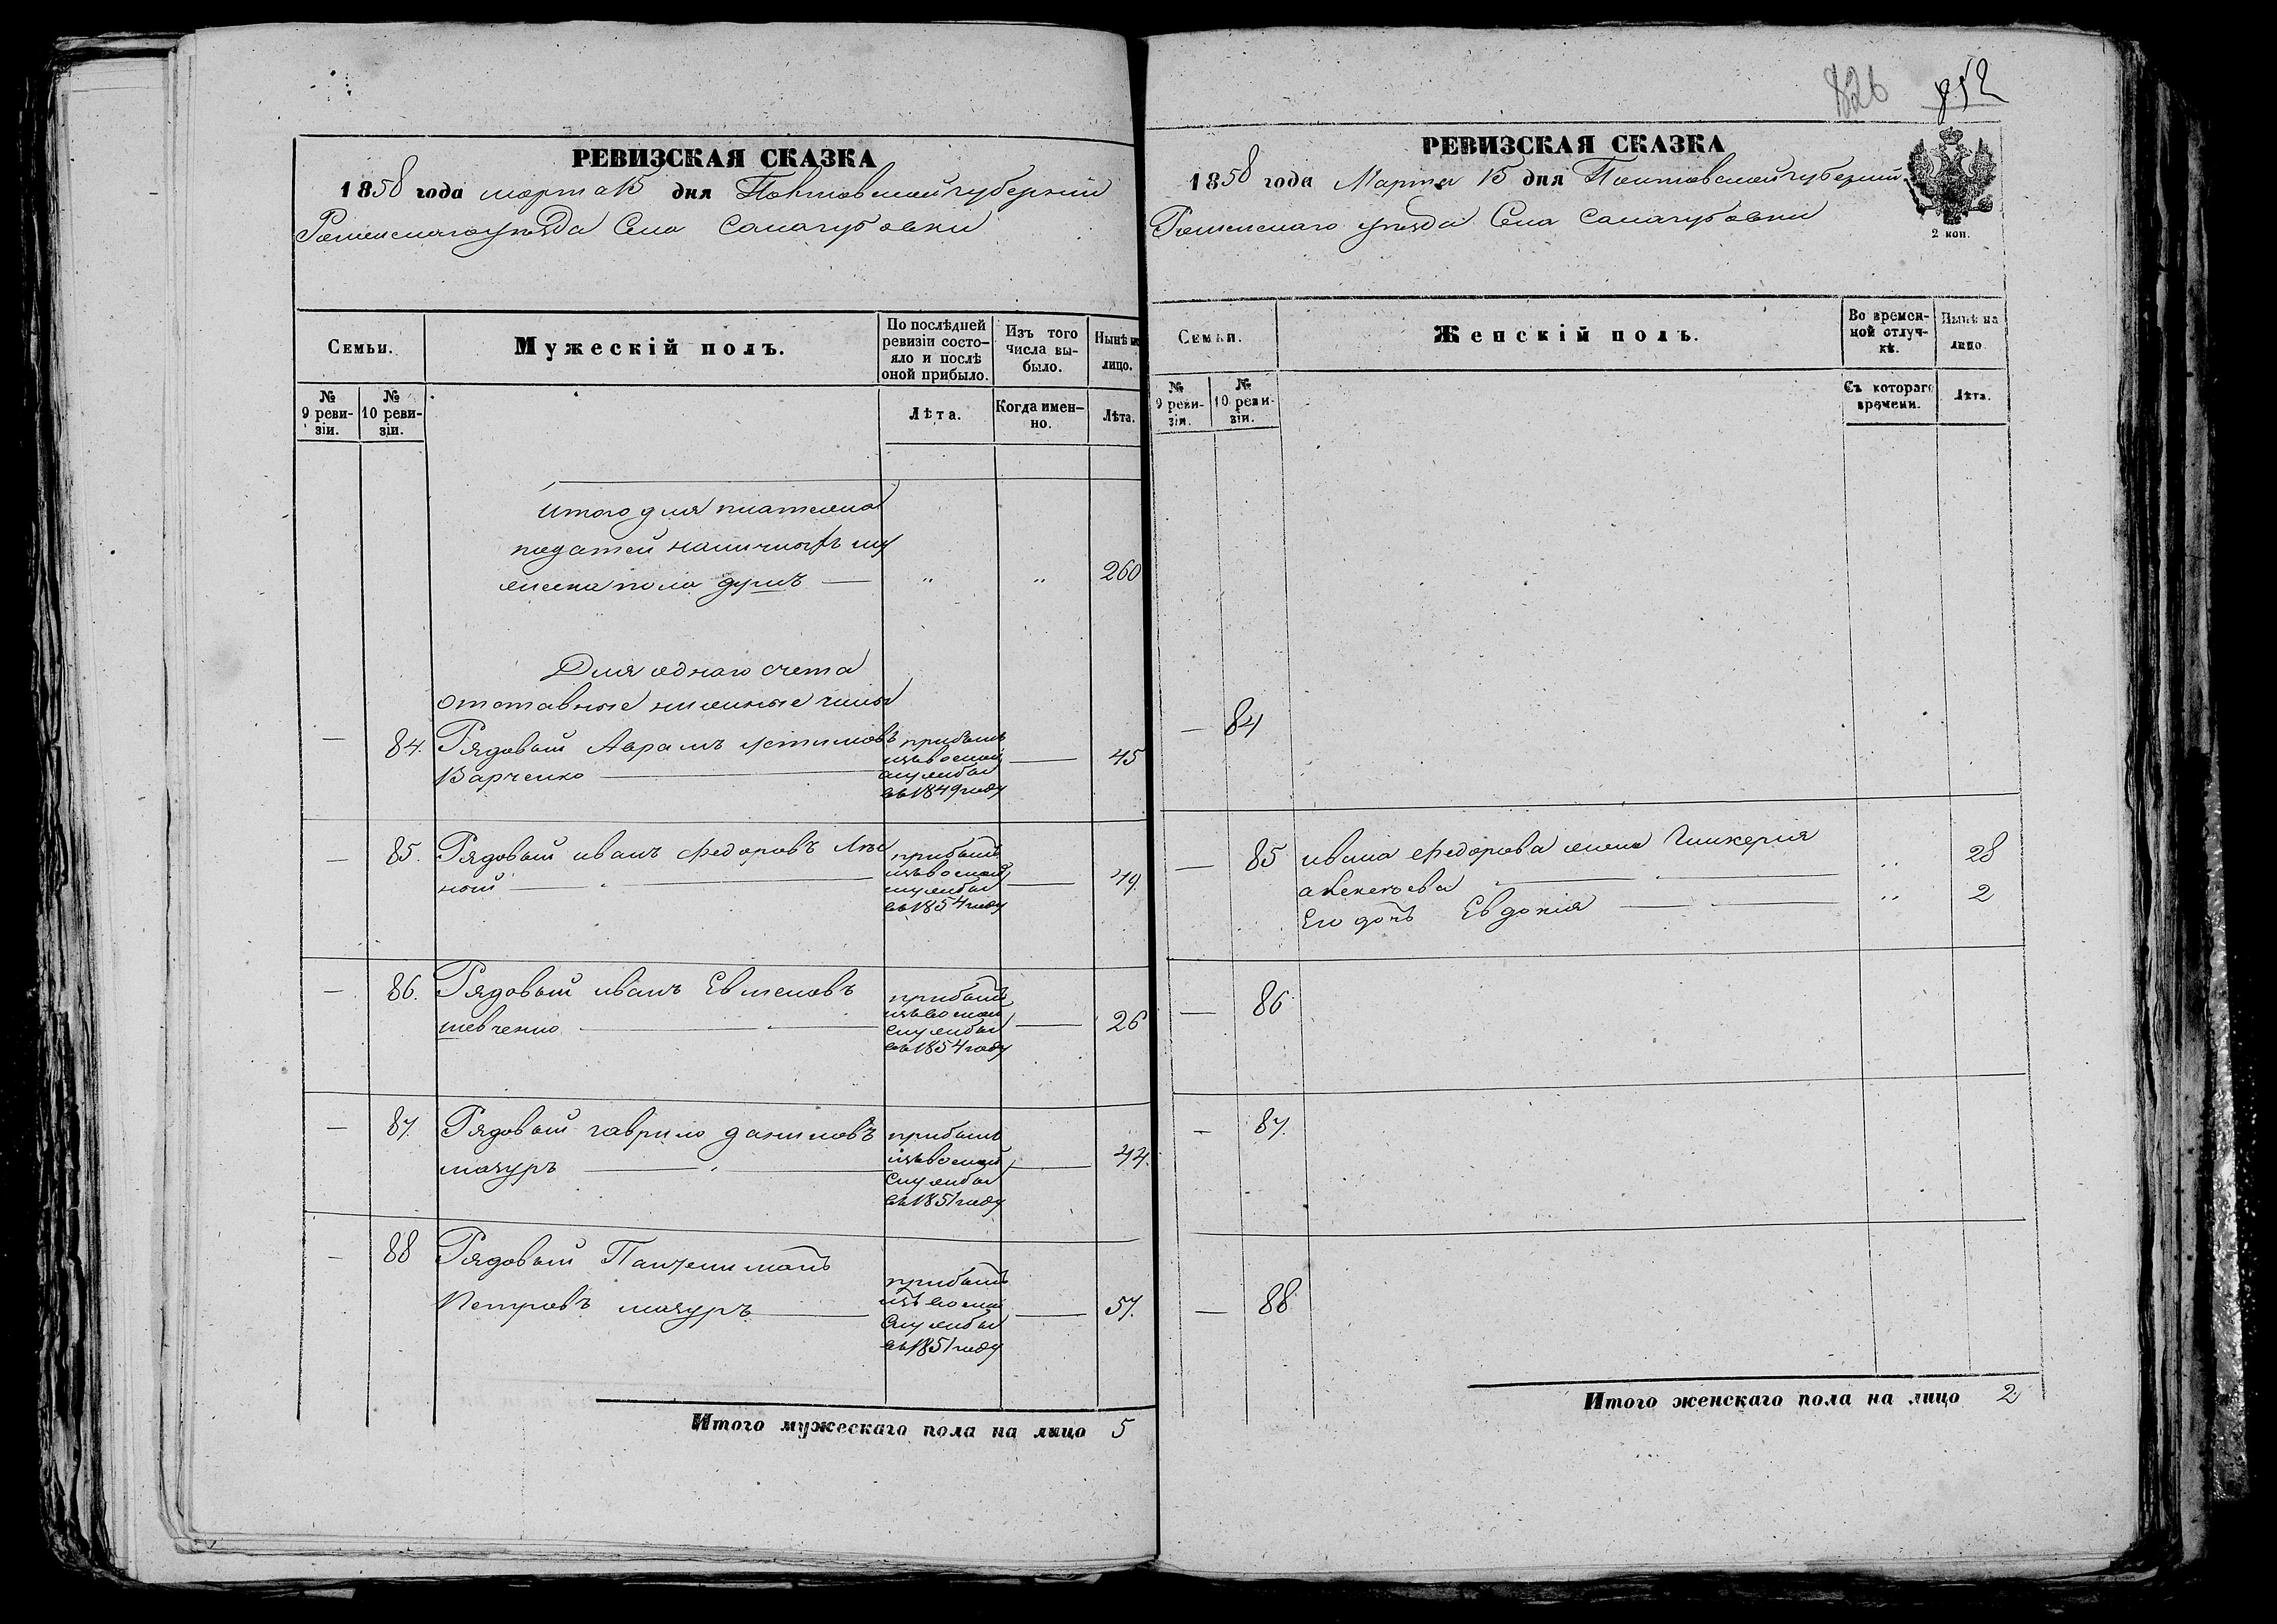 РЕВИЗСКАЯ СКАЗКА
1858 года марта 15 дня Полтавской губернии
Роменскаго уезда Села Салагубовки
Семьи.
Мужескій полъ.
По послѣдней ревизіи состо-
яло и послѣ
оной прибыло.
Изъ того
числа вы-
было.
Нынѣ на
лицо.
№
9 реви-
зіи.
№
10 реви-
зіи.
Лѣта.
Когда имен-
но.
Лѣта.
Итого для платежа
податей наличныхъ му
жеска пола душъ — " " 260
Для однаго счета
отставные нижные чины
— 84. Рядовый Аврамъ Устимовъ
Варченко
прибылъ
изъ военой
службы
въ 1849 году
— 45
— 85. Рядовый иванъ Федоровъ
ный
прибылъ
изъ военой
службы
въ 1854 году
— 49.
— 86. Рядовый иванъ Евменовъ
шевченко
прибылъ
изъ военой
службы
въ 1854 году
— 26
— 87. Рядовый гаврило даниловъ
мазуръ
прибылъ
изъ военой
службы
въ 1851 году
— 44.
— 88 Рядовый Панчелимонъ
Петровъ мазуръ
прибылъ
изъ военой
службы
въ 1851 году
— 57.
Итого мужескаго пола на лицо 5
826 852
РЕВИЗСКАЯ СКАЗКА
1858 года Марта 15 дня Полтавской губернии
Роменскаго уезда Села Салагубовки
2 коп.
Семьи.
Женскій полъ.
Во времен-
ной отлуч-
кѣ.
Нынѣ на
лицо.
№
9 реви-
зіи.
№
10 реви-
зіи.
Съ котораго
времени.
Лѣта.
— 84
— 85 ивана Федорова жена Гликерия
алексеева " 28
Его дочь Евдокия " 2
— 86
— 87.
— 88
Итого женскаго пола на лицо 2